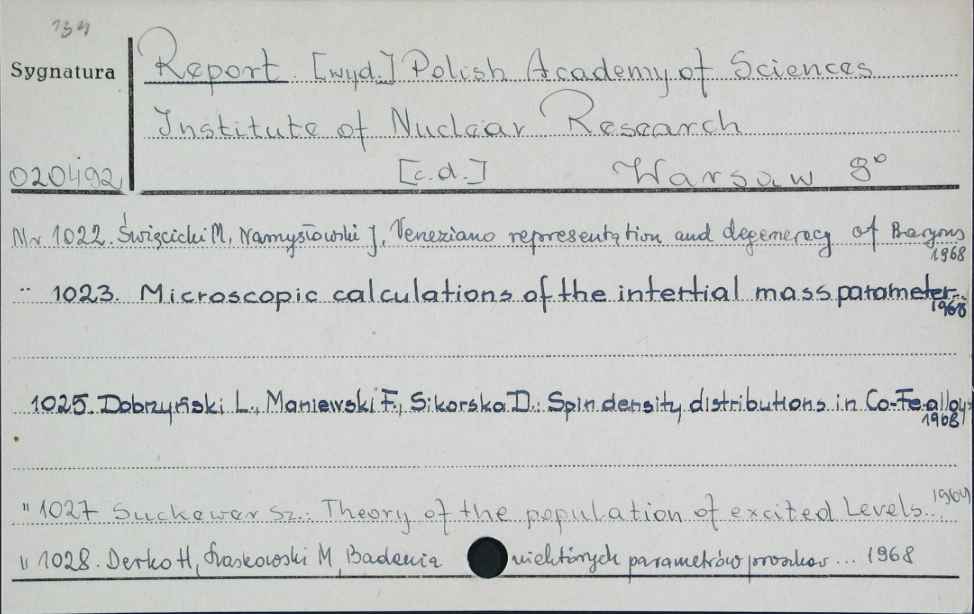 134
Sygnatura
Report [wyd.] Polish Academy of Sciences
Institute of Nuclear Research
020492
[c.d.] Warsaw 8°
Nr 1022. Święcicki M, Namysłowski J, Veneziano representation and degeneracy of Baryons 1968
" 1023. Microscopic calculations of the intertial mass parameter... 1968
1025. Dobrzyński L., Maniewski F., Sikorska D.: Spin density distributions in Co-Fe alloys 1968
" 1027 Suckewer Sz.: Theory of the population of excited Levels...
" 1028. Derko H, Łaskowski M, Badania niektórych parametrów ... 1968